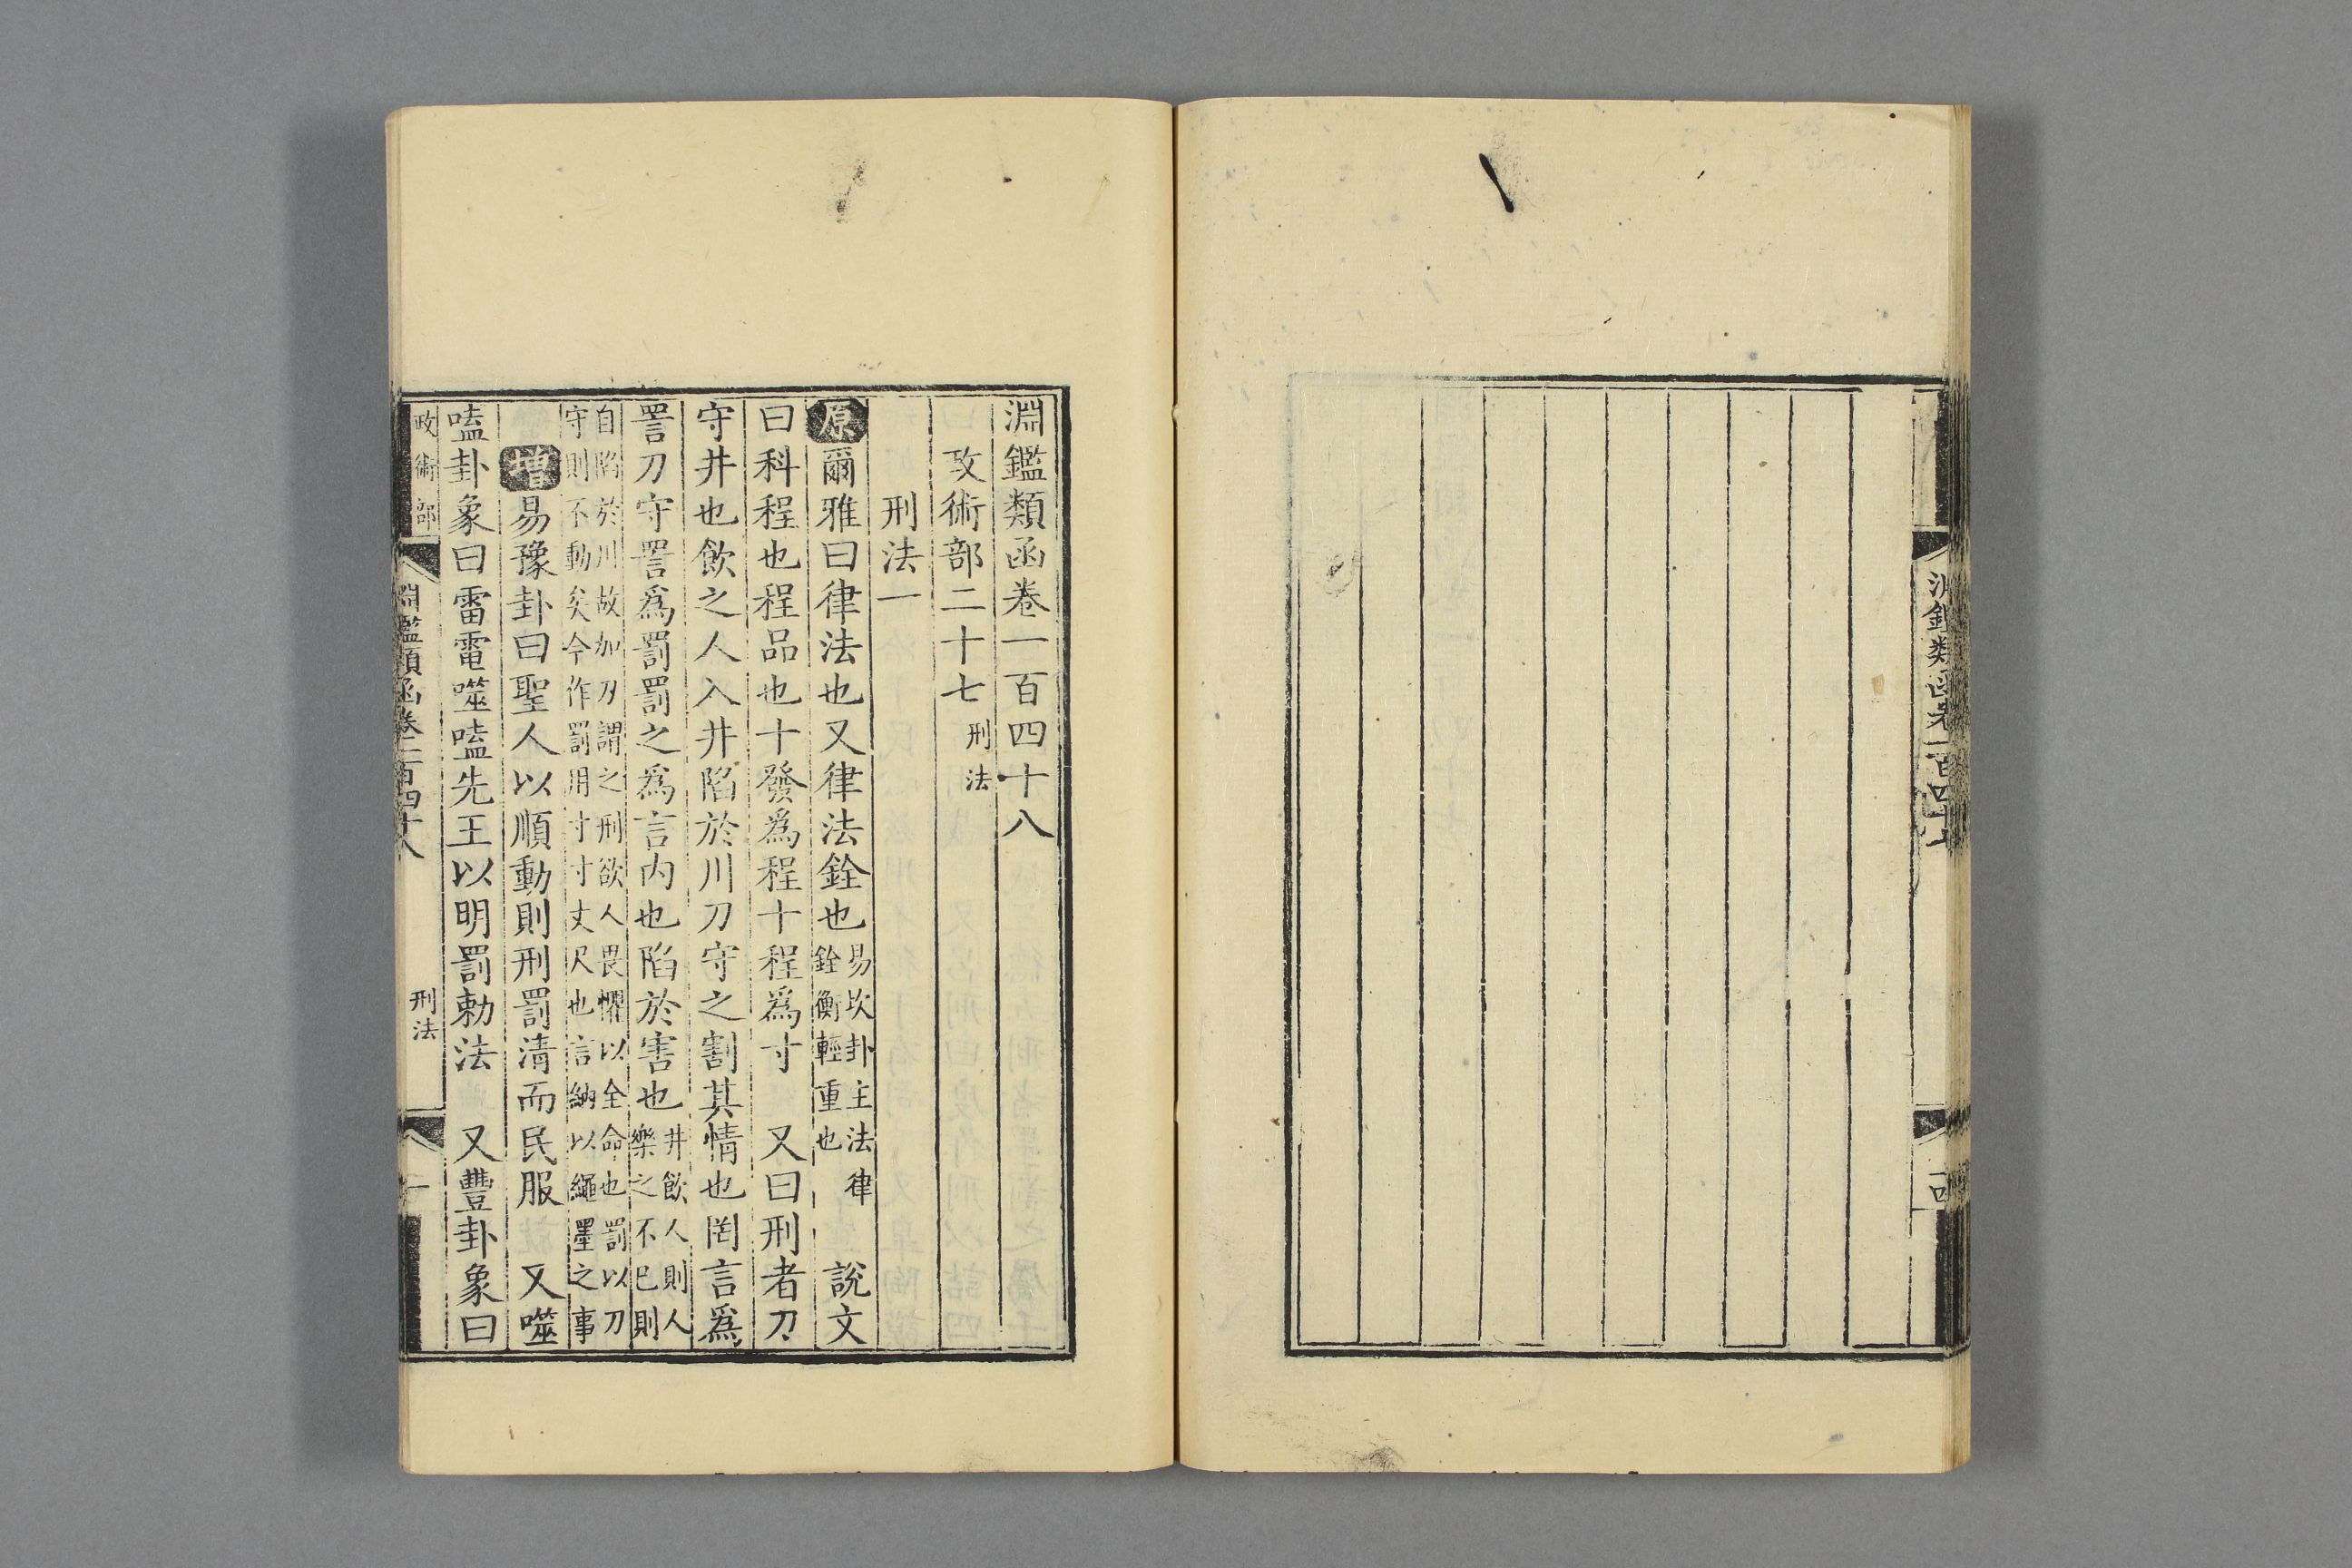 淵鑑類函卷一百四十八
政術部二十七刑法
刑法一
原爾雅曰律法也又律法銓也易坎卦主法律銓衡輕重也 說文
曰科程也程品也十發爲程十程爲寸 又曰刑者刀
守井也飲之人入井陷於川刀守之割其情也罔言爲
詈刀守詈爲罰罰之爲言内也陷於害也井飲人則人樂之不已則
自陷於川故加刀謂之刑欲人畏懼以全命也罰以刀守則不動矣今作罰用寸寸丈尺也言納以繩墨之事
增易豫卦曰聖人以順動則刑罰清而民服 又噬
嗑卦象曰雷電噬嗑先王以明罰勅法 又豐卦象曰
政術部 淵鑑類函卷一百四十八 刑法 一